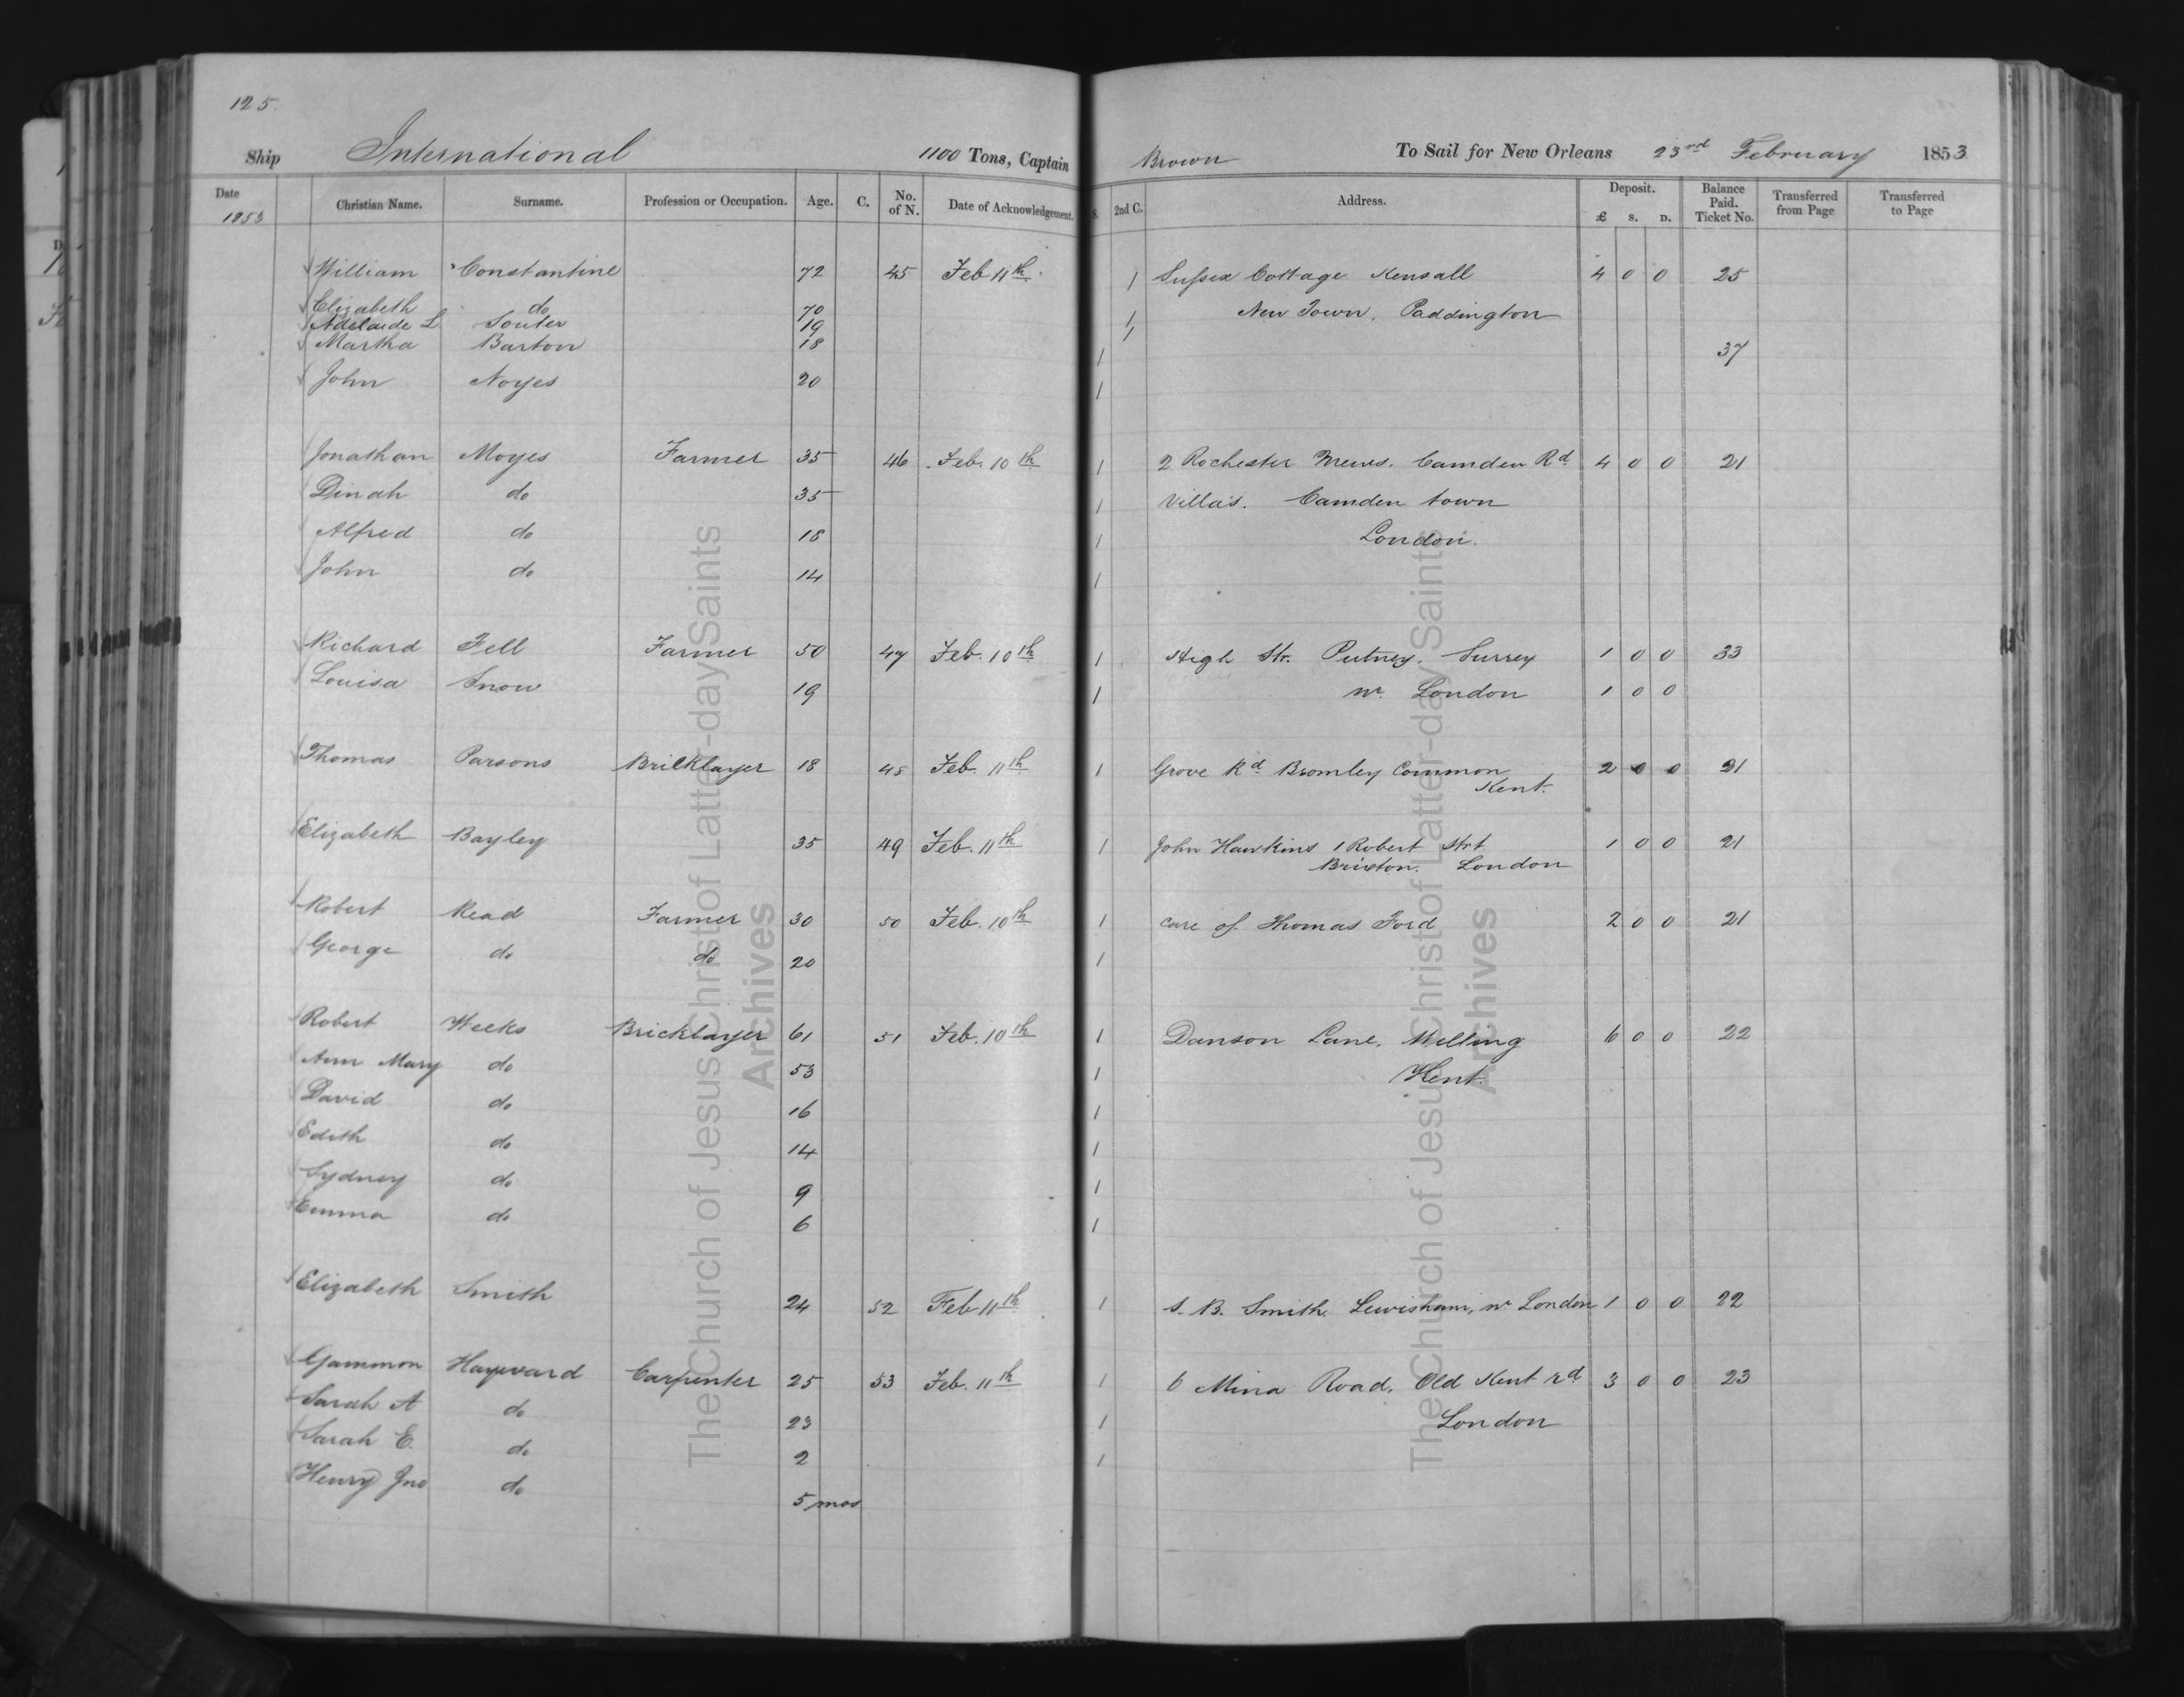 125.
Ship International 1100 Tons, Captain Brown To Sail for New Orleans 23rd February 1853
Date Christian Name. Surname. Profession or Occupation. Age. C. No. of N. Date of Acknowledgement. S. 2nd C. Address. Deposit. £ S. D. Balance Paid. Ticket No. Transferred from Page Transferred to Page
1853
William Constantine 72 45 Feb 11th. 1 Sussex Cottage Kensall 4 0 0 25
Elizabeth do 70 1 New Town. Paddington
Adelaide L Souter 19 1
Martha Barton 18 1 37
John Noyes 20 1
Jonathan Moyes Farmer 35 46 Feb. 10th 1 2 Rochester Mews. Camden Rd 4 0 0 21
Dinah do 35 1 Villa's. Camden town
Alfred do 18 1 London.
John do 14 1
Richard Fell Farmer 50 47 Feb. 10th 1 High Str. Putney. Surrey 1 0 0 33
Louisa Snow 19 1 nr. London 1 0 0
Thomas Parsons Bricklayer 18 48 Feb. 11th 1 Grove Rd Bromley Common 2 0 0 21
Kent.
Elizabeth Bayley 35 49 Feb. 11th 1 John Hawkins 1 Robert Strt 1 0 0 21
Brixton. London
Robert Read Farmer 30 50 Feb. 10th 1 care of Thomas Ford 2 0 0 21
George do do 20 1
Robert Weeks Bricklayer 61 51 Feb. 10th 1 Danson Lane, Welling 6 0 0 22
Ann Mary do 53 1 Kent.
David do 16 1
Edith do 14 1
Sydney do 9 1
Emma do 6 1
Elizabeth Smith 24 52 Feb 11th 1 S. B. Smith. Lewisham, nr London 1 0 0 22
Gammon Hayward Carpenter 25 53 Feb. 11th 1 6 Mina Road, Old Kent rd 3 0 0 23
Sarah A do 23 1 London
Sarah E. do 2 1
Henry Jno do 5 mos
The Church of Jesus Christ of Latter-day Saints
Archives
The Church of Jesus Christ of Latter-day Saints
Archives